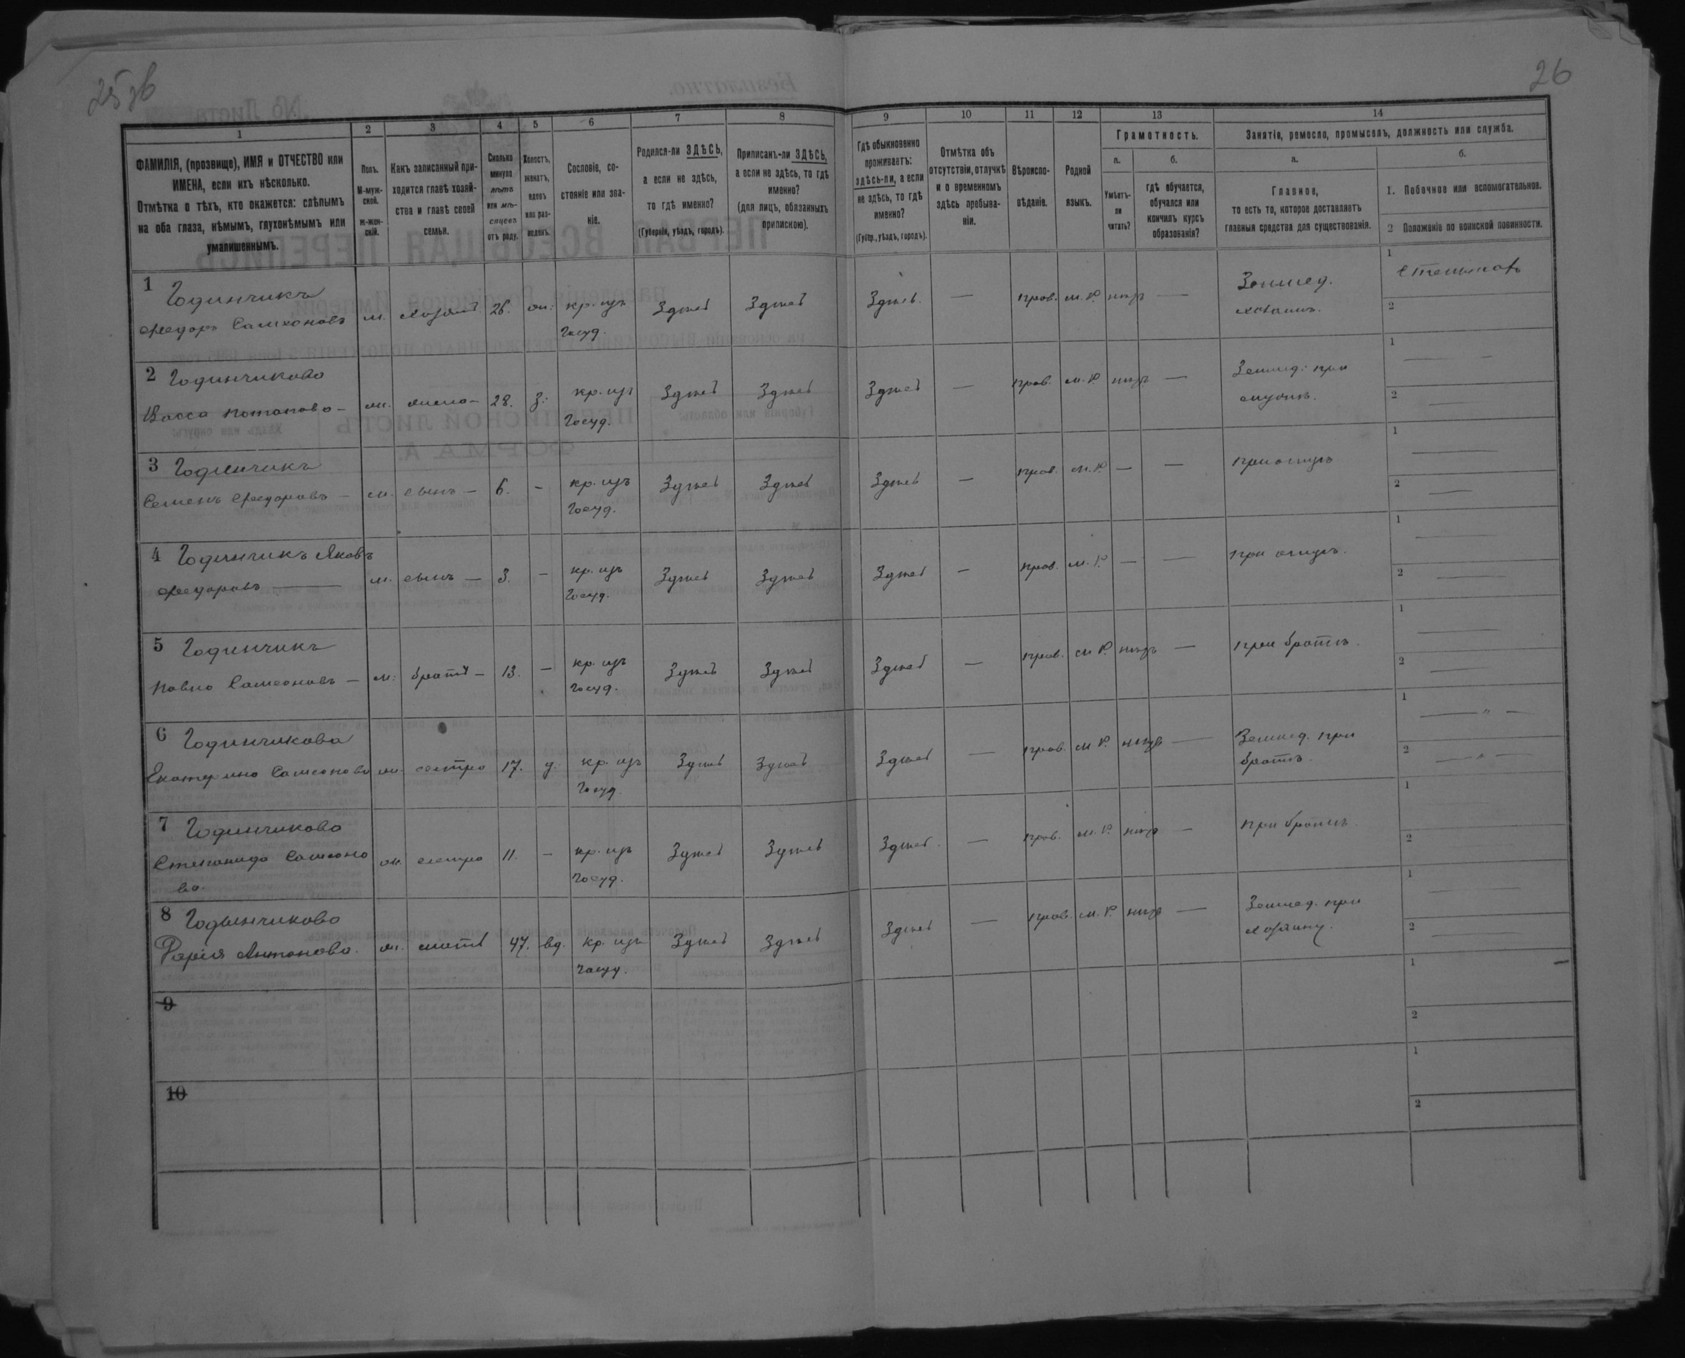 25 зв
26
1 2 3 4 5 6 7 8 9 10 11 12 13 14
ФАМИЛІЯ, (прозвище), ИМЯ и ОТЧЕСТВО или ИМЕНА, если ихъ нѣсколько.
Отмѣтка о тѣхъ, кто окажется: слѣпымъ на оба глаза, нѣмымъ, глухонѣмымъ или умалишеннымъ.
Полъ. М-мужской. ж-женскій.
Какъ записанный приходится главѣ хозяйства и главѣ своей семьи.
Сколько минуло лѣтъ или мѣсяцевъ отъ роду.
Холостъ, женатъ, вдовъ или разведенъ.
Сословіе, состояніе или званіе.
Родился-ли ЗДѢСЬ, а если не здѣсь, то гдѣ именно?
(Губернія, уѣздъ, городъ).
Приписанъ-ли ЗДѢСЬ, а если не здѣсь, то гдѣ именно?
(для лицъ, обязанныхъ припискою).
Гдѣ обыкновенно проживаетъ: здѣсь-ли, а если не здѣсь, то гдѣ именно?
(Губер., уѣздъ, городъ).
Отмѣтка объ отсутствіи, отлучкѣ и о временномъ здѣсь пребываніи.
Вѣроисповѣданіе.
Родной языкъ.
Грамотность.
а. Умѣетъ-ли читать?
б. гдѣ обучается, обучался или кончилъ курсъ образованія?
Занятіе, ремесло, промыселъ, должность или служба.
а. Главное, то есть то, которое доставляетъ главныя средства для существованія.
б.
1. Побочное или вспомогательное.
2 Положеніе по воинской повинности.
1 Годинчикъ Федоръ Самсоновъ м. хозяинъ 26. ж. кр. изъ госуд. Здѣсь Здѣсь Здѣсь — прав. м.р. нѣтъ — Землед. хозяинъ. 1 2
2 Годинчикова Васса Потапова — ж. жена — 28. з. кр. изъ госуд. Здѣсь Здѣсь Здѣсь — прав. м.р. нѣтъ — Землед. при мужѣ. 1 — 2 —
3 Годинчикъ Семенъ Федоровъ — м. сынъ — 6. - кр. изъ госуд. Здѣсь Здѣсь Здѣсь — прав. м.р. — — при отцѣ 1 — 2 —
4 Годинчикъ Яковъ Федоровъ — м. сынъ — 3. - кр. изъ госуд. Здѣсь Здѣсь Здѣсь — прав. м.р. — — при отцѣ. 1 — 2 —
5 Годинчикъ Павло Самсоновъ — м. братъ — 13. — кр. изъ госуд. Здѣсь Здѣсь Здѣсь — прав. м.р. нѣтъ — при братѣ. 1 — 2 —
6 Годинчикова Екатерина Самсонова ж. сестра 17. д. кр. изъ госуд. Здѣсь Здѣсь Здѣсь — прав. м.р. нѣтъ — Землед. при братѣ. 1 — 2 —
7 Годинчикова Степанида Самсонова. ж. сестра 11. — кр. изъ госуд. Здѣсь Здѣсь Здѣсь — прав. м.р. нѣтъ — при братѣ. 1 2
8 Годынчикова Антонова. ж. мать 47. вд. кр. изъ госуд. Здѣсь Здѣсь Здѣсь — прав. м.р. нѣтъ — Землед. при 1 — 2 —
9 1 2
10 1 2